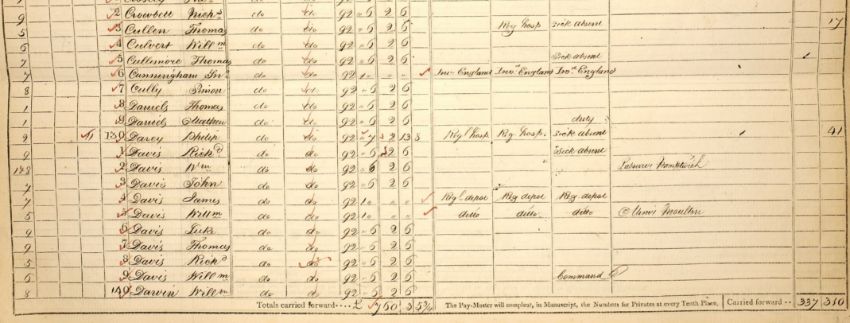 2 Crowbett Richd do do 92 " 5 2 6
5 3 Cullen Thomas do do 92 " 5 2 6 Rgl hosp Sick absent 17
6 4 Culvert Willm do do 92 " 5 2 6
7 5 Cullimore Thomas do do 92 " 5 2 6 Sick absent
7 6 Cunningham Jno do do 92 Invd England Invd England Invd England
8 7 Cully Simon do do 92 " 5 2 6
1 8 Daniels Thomas do do 92 " 5 2 6
1 9 Daniels Matthew do do 92 " 5 2 6 duty
9 130 Darcy Philip do do 92 2 13 Rgl hosp Rg hosp Sick absent 41
9 1 Davis Richd do do 92 " 5 2 6 Sick absent
178 2 Davis Wm do do 92 " 5 2 6
3 Davis John do do 92 " 5 2 6
4 Davis James do do 92 Rgl depot Rg depot Rg depot
5 5 Davis Willm do do 92 ditto ditto ditto
6 Davis Luke do do 92 " 5 2 6
9 7 Davis Thomas do do 92 " 5 2 6
8 Davis Richd do do 92 " 5 2 6
6 9 Davis Willm do do 92 " 5 2 6 Command
8 140 Darwin Willm do do 92 " 5 2 6
Totals carried forward £ The Pay-Master will compleat, in Manuscript, the Numbers for Privates at every Tenth Place. Carried forward 337 310